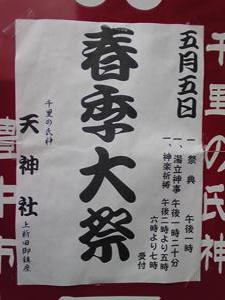 五月五日
一、祭典 午後一時
一、湯立神事 午後一時二十分
一、神楽祈祷 午後二時より五時
六時より七時
受付
春季大祭
千里の氏神
天神社
上新田御鎮座
千里の氏神
豊中市